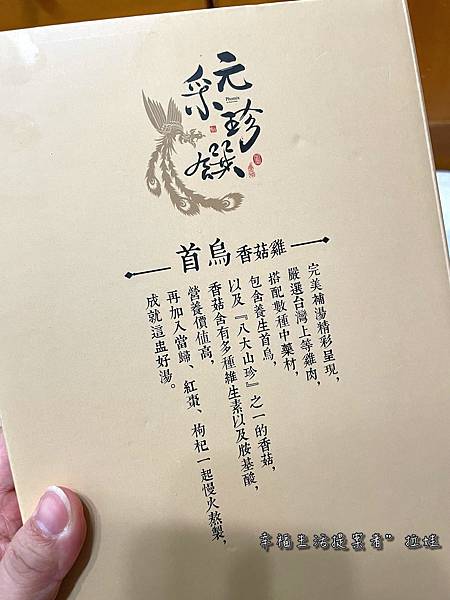 元珍
采饌
Phoenix
首烏 香菇雞
完美補湯精彩呈現，
嚴選台灣上等雞肉，
搭配數種中藥材，
包含養生首烏，
以及『八大山珍』之一的香菇，
香菇含有多種維生素以及胺基酸，
營養價值高，
再加入當歸、紅棗、枸杞一起慢火熬製，
成就這盅好湯。
幸福生活提案者”拉娃